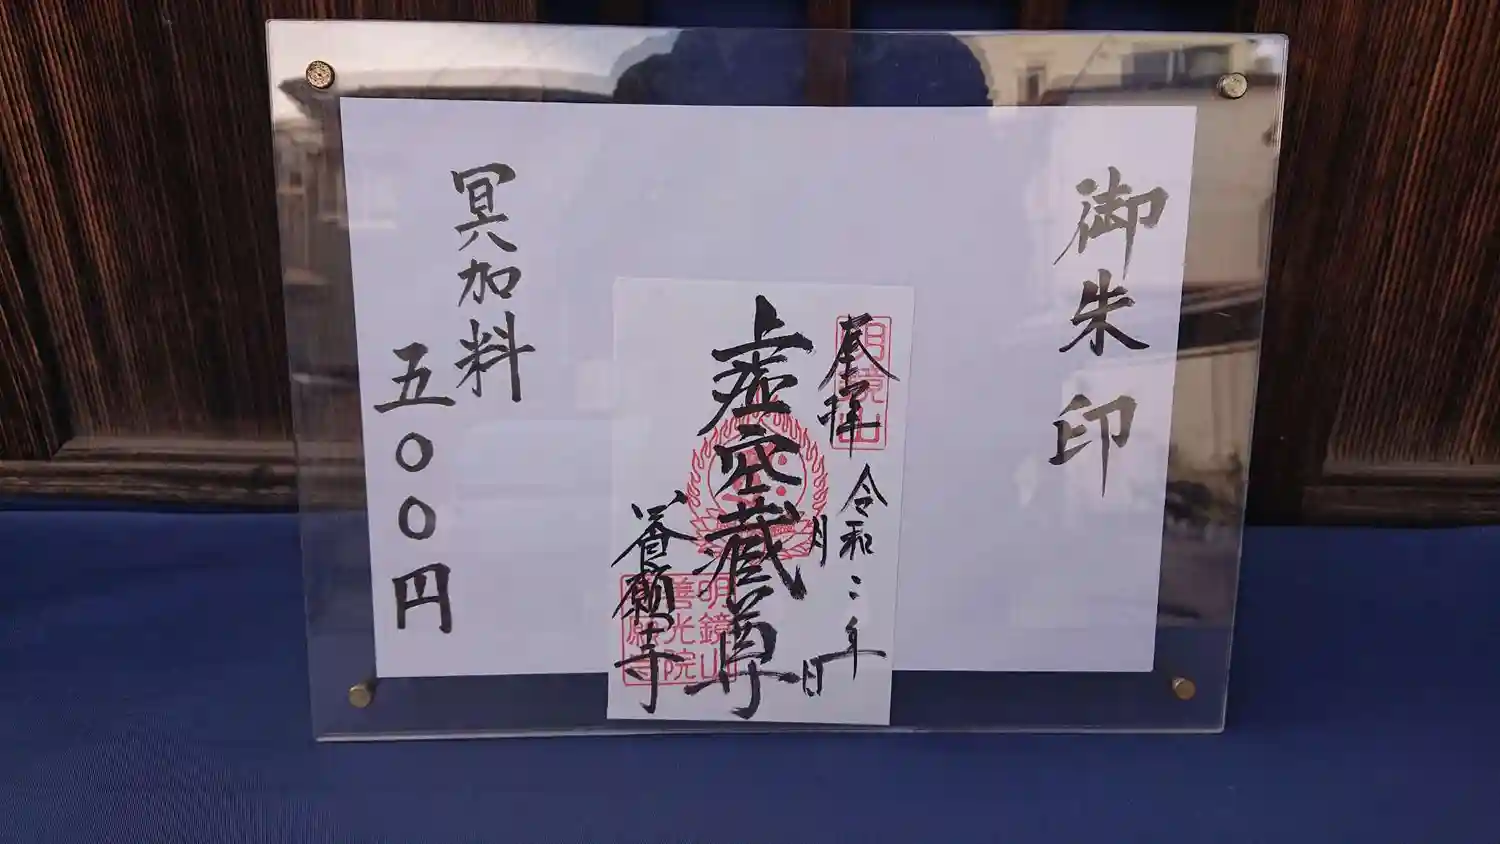 御朱印
明鏡山
奉拝
令和二年
月
日
虚空蔵尊
善願寺
明鏡山
善光院
善願寺
冥加料
五〇〇円